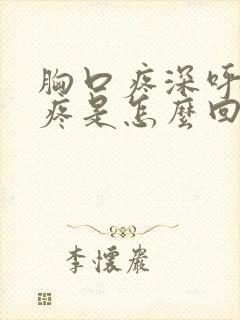 胸口疼深呼
疼是怎麼回
李懷巖